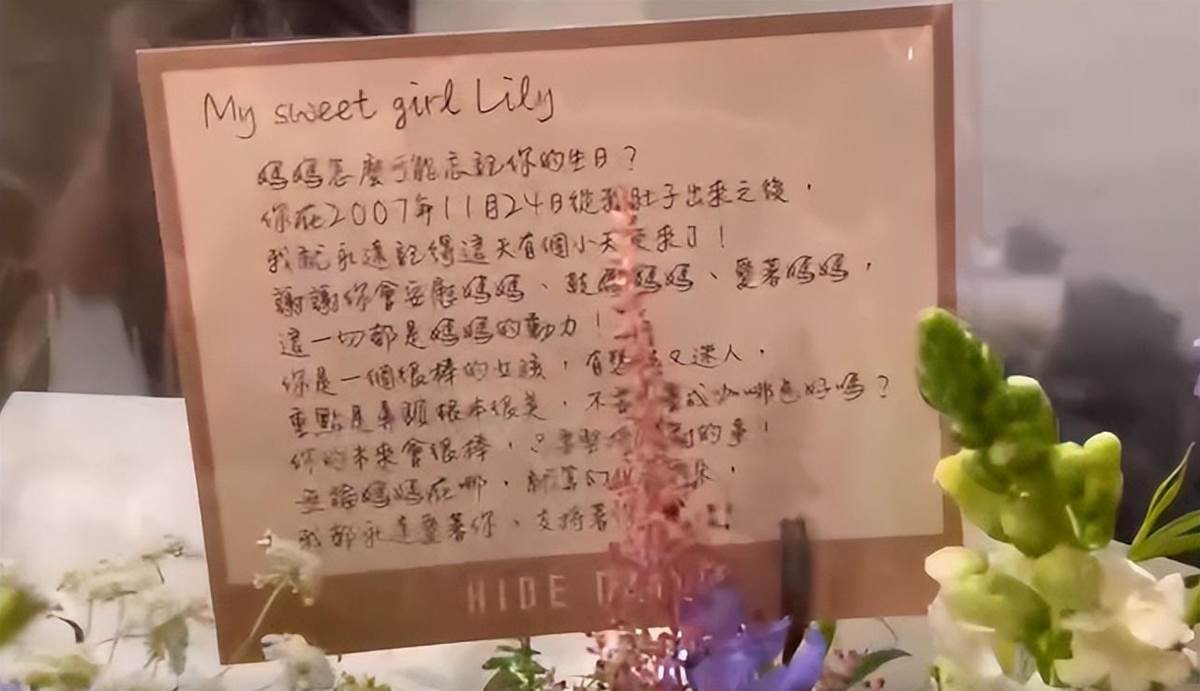 My sweet girl Lily
媽媽怎麼可能忘記你的生日？
你在2007年11月24日從我肚子出來之後，
我就永遠記得這天有個小天使來了！
謝謝你會安慰媽媽、鼓勵媽媽、愛著媽媽，
這一切都是媽媽的動力！
你是一個很棒的女孩，有 又迷人，
重點是 頭根本很美，不 成咖啡色好嗎？
你的未來會很棒， 要堅 的事！
無論媽媽在哪，就算
我都永遠愛著你、支持著
HIDE